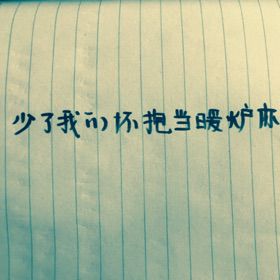 少了我的怀抱当暖炉